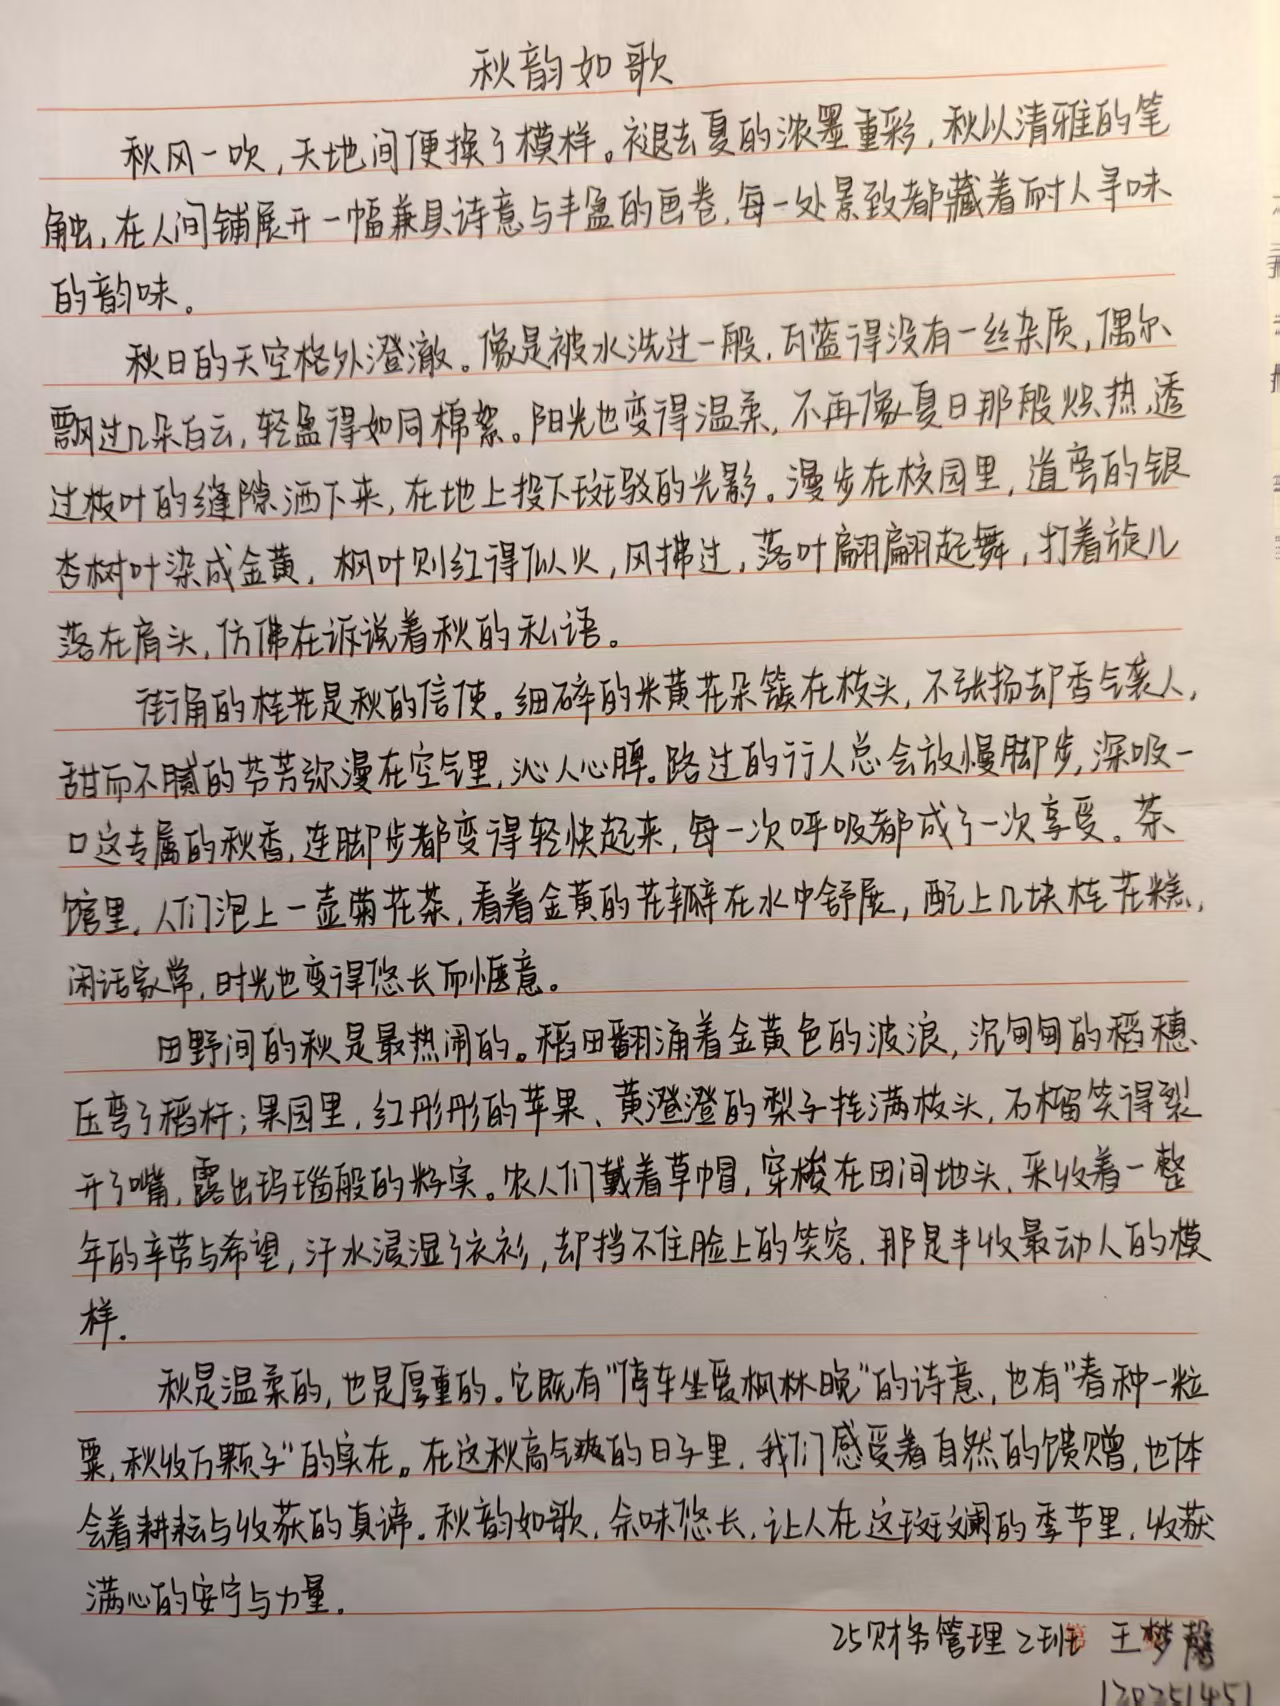 秋韵如歌
秋风一吹，天地间便换了模样。褪去夏的浓墨重彩，秋以清雅的笔
触，在人间铺展开一幅兼具诗意与丰盈的画卷，每一处景致都藏着耐人寻味
的韵味。
秋日的天空格外澄澈。像是被水洗过一般，瓦蓝得没有一丝杂质，偶尔
飘过几朵白云，轻盈得如同棉絮。阳光也变得温柔，不再像夏日那般炽热，透
过枝叶的缝隙洒下来，在地上投下斑驳的光影。漫步在校园里，道旁的银
杏树叶染成金黄，枫叶则红得似火，风拂过，落叶翩翩起舞，打着旋儿
落在肩头，仿佛在诉说着秋的私语。
街角的桂花是秋的信使。细碎的米黄花朵簇在枝头，不张扬却香气袭人，
甜而不腻的芬芳弥漫在空气里，沁人心脾。路过的行人总会放慢脚步，深吸一
口这专属的秋香，连脚步都变得轻快起来，每一次呼吸都成了一次享受。茶
馆里，人们泡上一壶菊花茶，看着金黄的花瓣在水中舒展，配上几块桂花糕，
闲话家常，时光也变得悠长而惬意。
田野间的秋是最热闹的。稻田翻涌着金黄色的波浪，沉甸甸的稻穗
压弯了稻杆；果园里，红彤彤的苹果、黄澄澄的梨子挂满枝头，石榴笑得裂
开了嘴，露出玛瑙般的籽实。农人们戴着草帽，穿梭在田间地头，采收着一整
年的辛劳与希望，汗水浸湿了衣衫，却挡不住脸上的笑容，那是丰收最动人的模
样.
秋是温柔的，也是厚重的。它既有“停车坐爱枫林晚”的诗意，也有“春种一粒
粟，秋收万颗子”的实在。在这秋高气爽的日子里，我们感受着自然的馈赠，也体
会着耕耘与收获的真谛。秋韵如歌，余味悠长，让人在这斑斓的季节里，收获
满心的安宁与力量.
25财务管理2班 王梦
120251451